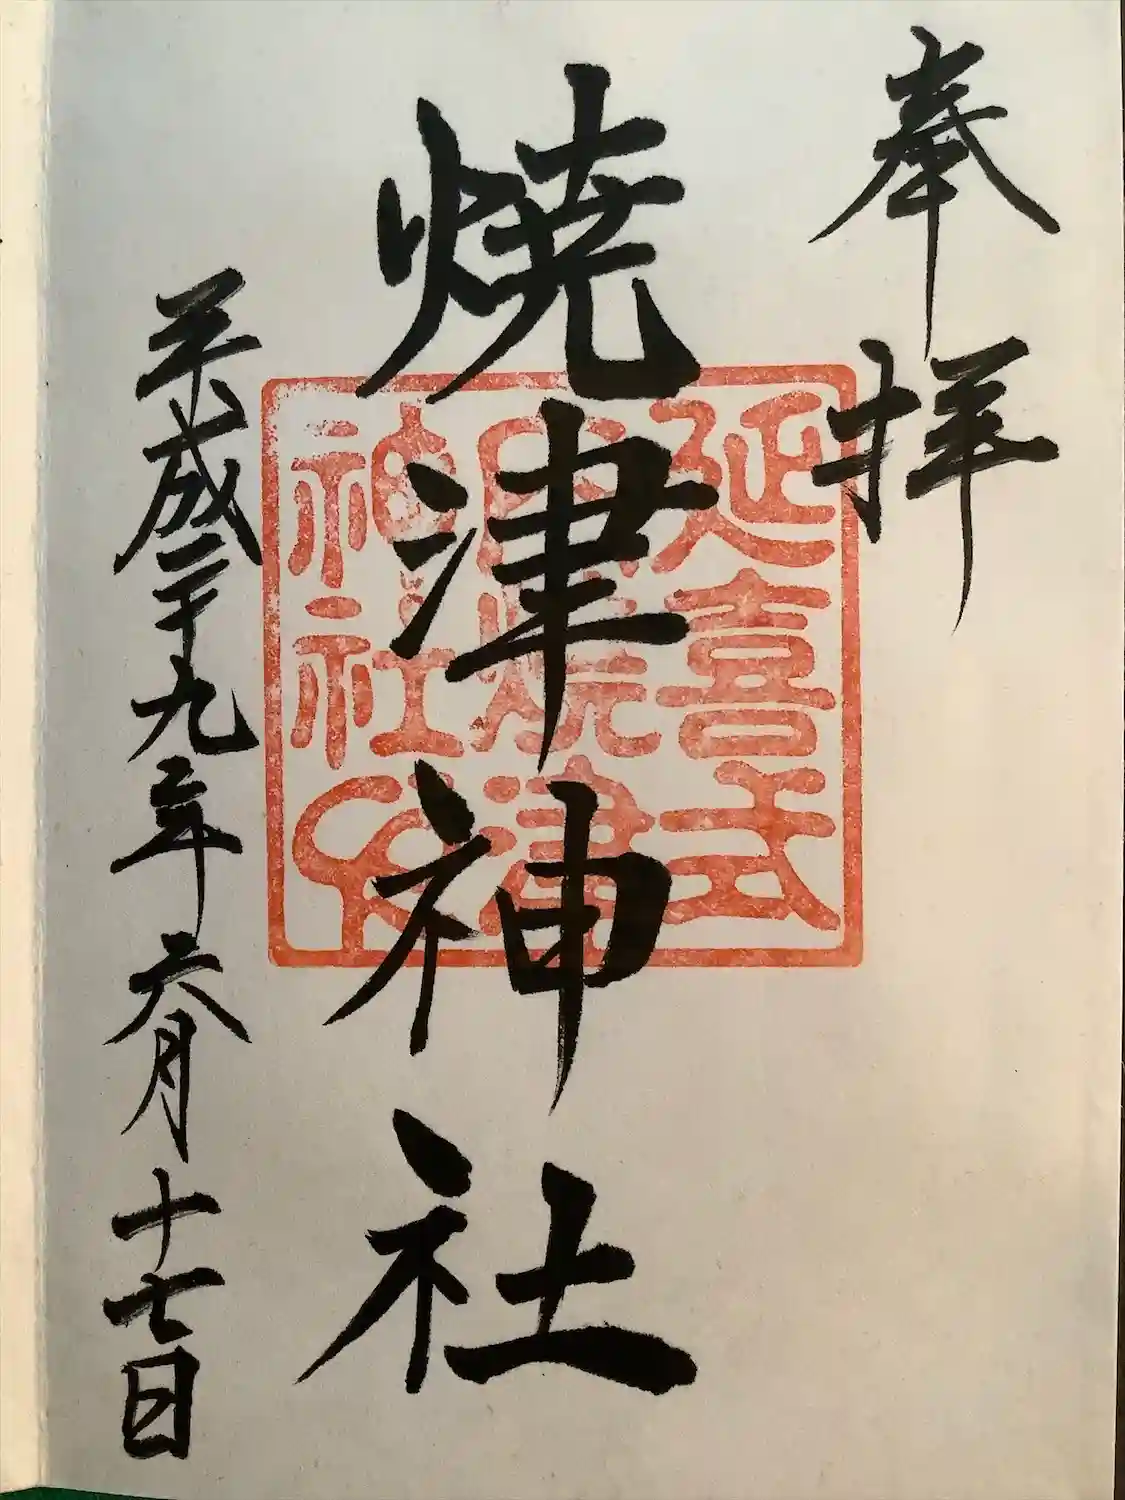 奉拝
延喜式
内焼津
神社印
焼津神社
平成二十九年六月十七日